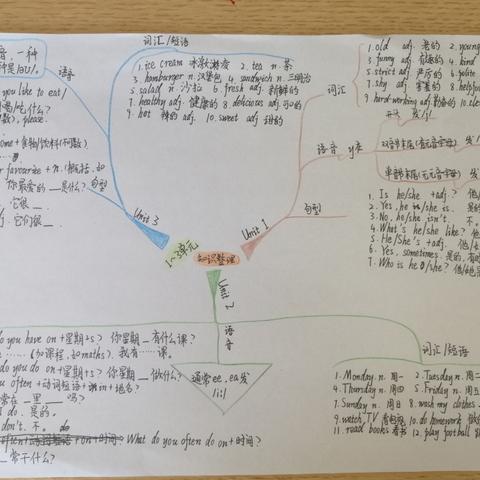 词汇/短语
1.ice cream 冰淇淋 2. tea n.茶
3. hamburger n.汉堡包 4. sandwich n.三明治
5.salad n.沙拉 6. fresh adj.新鲜的
7.healthy adj.健康的 8. delicious adj.可口的
9. hot 辣的 adj. 10. sweet adj.甜的
音,一种
语音
you like to eat/
什么?
please.
favourite + n.
你最爱的__是什么?
句型
它很__.
Unit 3
1~3单元
知识整理
Unit 1
词汇
1. old adj.老的 2. young
3. funny adj. 4. kind
5.strict adj.严厉的 6. polite
7. shy adj.害羞的 8. helpful
9. hard-working adj.勤奋的 10.
语音 y在
句型
1. Is he/she +adj.?
2. Yes, he/she is. 是的
3. No, he/she isn't. 不
4. What's he/she like?
5. He/She's +adj.
6. Yes, sometimes. 是的,
7. Who is he/she?
Unit 2
语音
通常ee, ea发
/i:/
do you have on+星期+s? 你星期__有什么课?
(加课程,如maths).我有……课。
do you do on+星期+s? 你星期__做什么?
often +动词短语+in+地名?
常在__里__吗?
do. 是的。
don't. 不。
What do you often do on+时间?
常干什么?
词汇/短语
1. Monday n.周一 2.Tuesday n.周二
4.Thursday n.周四 5. Friday n.周五
7.Sunday n.周日 8. wash my clothes
9.watch TV 看电视 10. do homework
11. read books 看书 12. play football